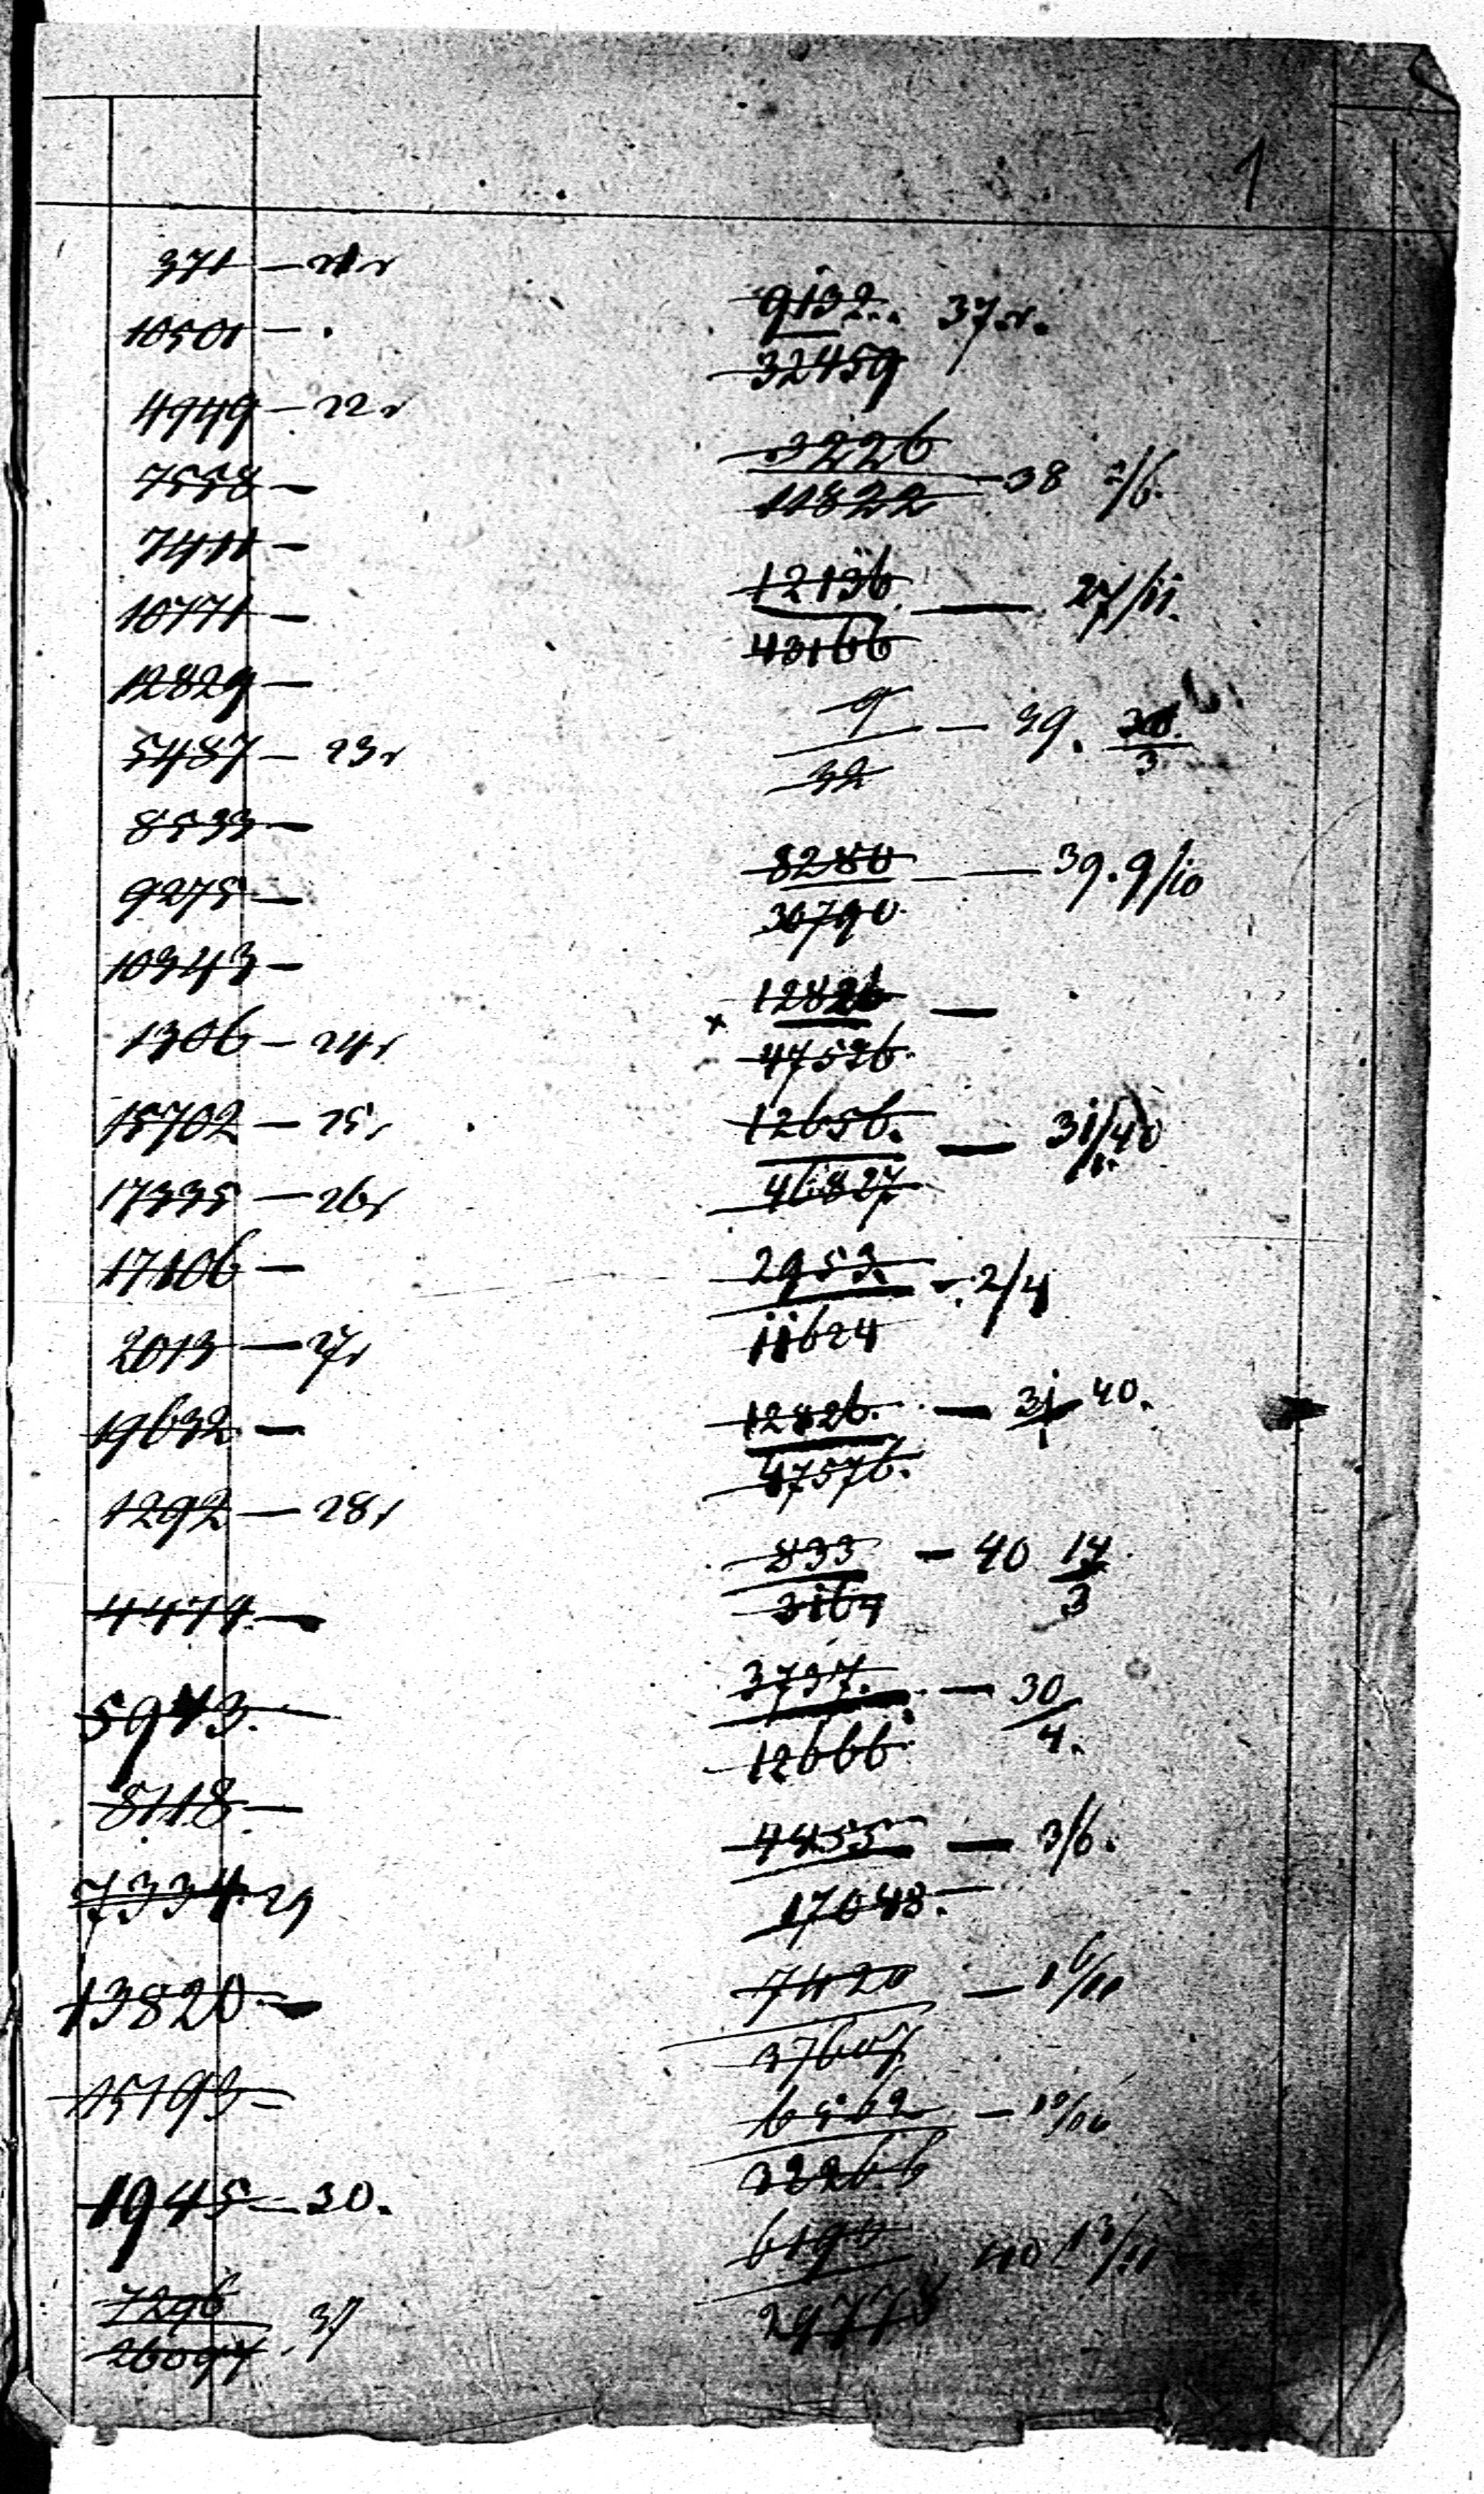 1
371 — 21 г
10501 — .
4949 — 22 г
7558 —
7411 —
10771 —
12829 —
5487 — 23 г
8533 —
9275 —
10343 —
1306 — 24 г
15702 — 25 г
17335 — 26 г
17106 —
2013 — 27 г
19632 —
1292 — 28 г
4474 —
5943. —
8118 —
7334. 29
13820 —
15193 —
1945 — 30.
7296
26094 . 37
9132.. 37 г.
32459
3226
11822 — 38 2/6.
12136. — 27/11.
43166
9
32 — 39.
3
8280 — 39. 9/10
30790
12826 —
x
47526.
12656. — 31/40
46827
2953. — 2/4
11624
12826. — 31 40.
1
47576.
833 — 40 17
3164 3
3737. — 30
12666 4.
4855 — 3/6.
17048. —
7420 — 16/10
37607
6562 —
32266
6190 40 13/11
29778